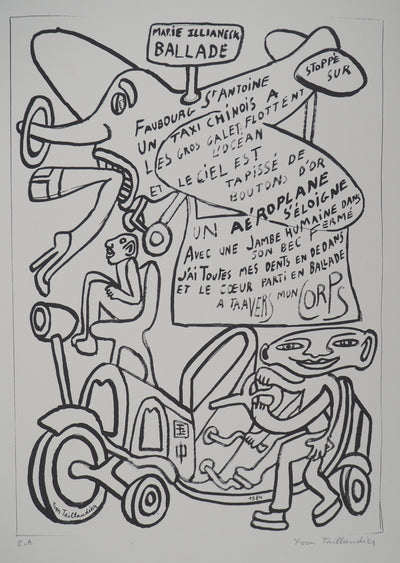 MARIE ILLIANECK
BALLADE
FAUBOURG ST ANTOINE
UN TAXI CHINOIS A
STOPPÉ
SUR
LES GROS GALET, FLOTTENT
L'OCÉAN
ET LE CIEL EST
TAPISSÉ DE
BOUTONS D'OR
UN AÉROPLANE
S'ÉLOIGNE
AVEC UNE JAMBE HUMAINE DANS
SON BEC FERMÉ
J'AI TOUTES MES DENTS EN DEDANS
ET LE CŒUR PARTI EN BALLADE
A TRAVERS MON CORPS
国
中
Yvon Taillandier
1984
E.A.
Yvon Taillandier